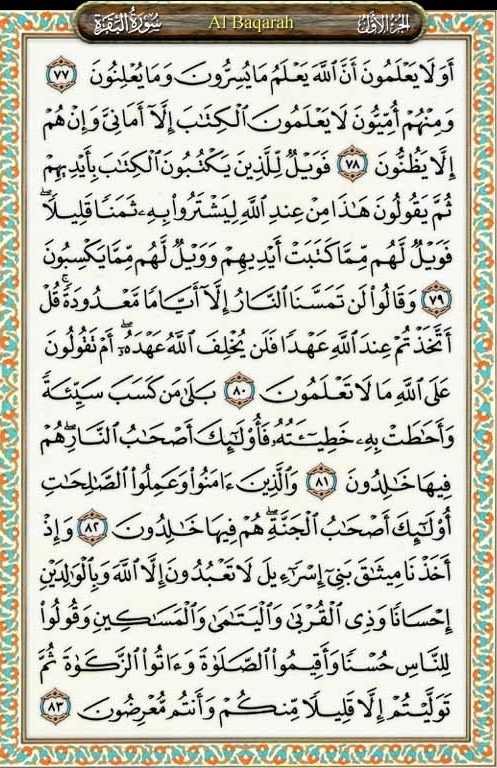 سُورَةُ البَقَرَة Al Baqarah الجُزءُ الأَوَّلُ
أَوَلَا يَعْلَمُونَ أَنَّ ٱللَّهَ يَعْلَمُ مَا يُسِرُّونَ وَمَا يُعْلِنُونَ ٧٧
وَمِنْهُمْ أُمِّيُّونَ لَا يَعْلَمُونَ ٱلْكِتَٰبَ إِلَّآ أَمَانِىَّ وَإِنْ هُمْ
إِلَّا يَظُنُّونَ ٧٨ فَوَيْلٌ لِّلَّذِينَ يَكْتُبُونَ ٱلْكِتَٰبَ بِأَيْدِيهِمْ
ثُمَّ يَقُولُونَ هَٰذَا مِنْ عِندِ ٱللَّهِ لِيَشْتَرُوا۟ بِهِۦ ثَمَنًا قَلِيلًا ۖ
فَوَيْلٌ لَّهُم مِّمَّا كَتَبَتْ أَيْدِيهِمْ وَوَيْلٌ لَّهُم مِّمَّا يَكْسِبُونَ
٧٩ وَقَالُوا۟ لَن تَمَسَّنَا ٱلنَّارُ إِلَّآ أَيَّامًا مَّعْدُودَةً ۚ قُلْ
أَتَّخَذْتُمْ عِندَ ٱللَّهِ عَهْدًا فَلَن يُخْلِفَ ٱللَّهُ عَهْدَهُۥٓ ۖ أَمْ تَقُولُونَ
عَلَى ٱللَّهِ مَا لَا تَعْلَمُونَ ٨٠ بَلَىٰ مَن كَسَبَ سَيِّئَةً
وَأَحَٰطَتْ بِهِۦ خَطِيٓـَٔتُهُۥ فَأُو۟لَٰٓئِكَ أَصْحَٰبُ ٱلنَّارِ ۖ هُمْ
فِيهَا خَٰلِدُونَ ٨١ وَٱلَّذِينَ ءَامَنُوا۟ وَعَمِلُوا۟ ٱلصَّٰلِحَٰتِ
أُو۟لَٰٓئِكَ أَصْحَٰبُ ٱلْجَنَّةِ ۖ هُمْ فِيهَا خَٰلِدُونَ ٨٢ وَإِذْ
أَخَذْنَا مِيثَٰقَ بَنِىٓ إِسْرَٰٓءِيلَ لَا تَعْبُدُونَ إِلَّا ٱللَّهَ وَبِٱلْوَٰلِدَيْنِ
إِحْسَانًا وَذِى ٱلْقُرْبَىٰ وَٱلْيَتَٰمَىٰ وَٱلْمَسَٰكِينِ وَقُولُوا۟
لِلنَّاسِ حُسْنًا وَأَقِيمُوا۟ ٱلصَّلَوٰةَ وَءَاتُوا۟ ٱلزَّكَوٰةَ ثُمَّ
تَوَلَّيْتُمْ إِلَّا قَلِيلًا مِّنكُمْ وَأَنتُم مُّعْرِضُونَ ٨٣